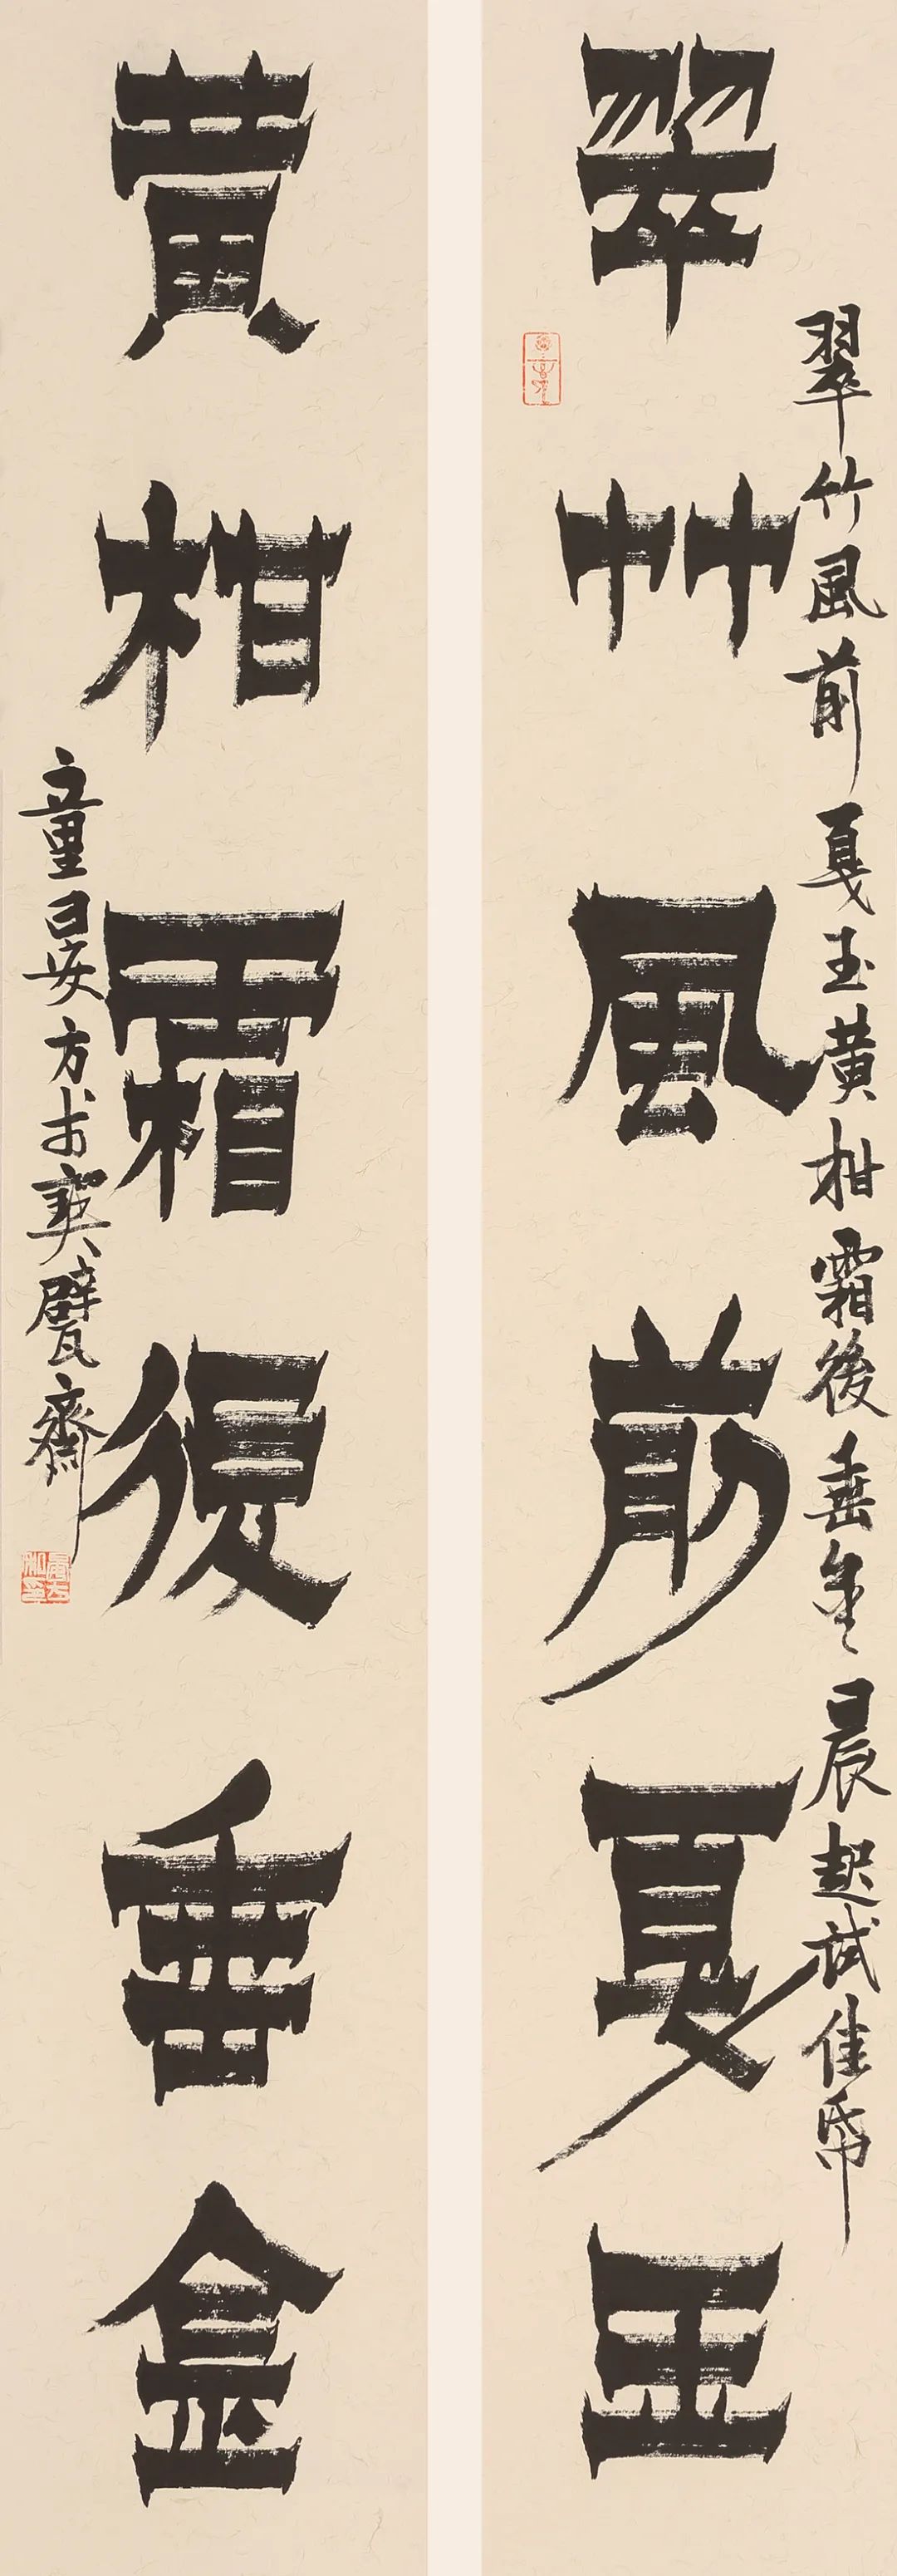 翠竹風前戛玉黃柑霜後垂金晨起試佳帋
翠竹風前戛玉
黃柑霜後垂金
童晏方於寶甓齋